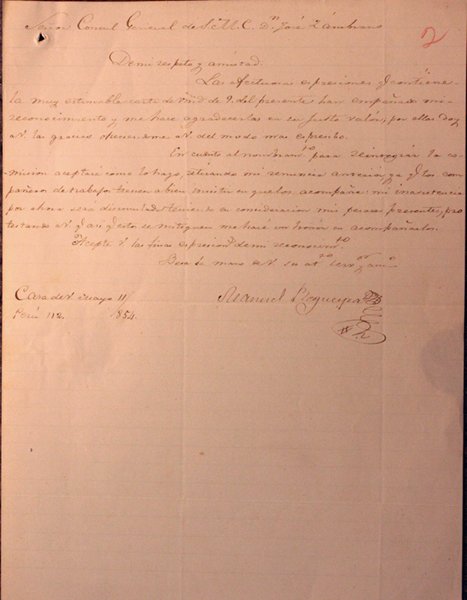 Señor Consul General de S. M. C. Dn José Zambrano
2
De mi respeto y amistad.
Las afectuosas espresiones q. contiene
la muy estimable carta de Vmd de 9. del presente han empeñado mi re-
conocimiento y me hace agradecerlas en su justo valor; por ellas doy
a V. las gracias ofreciendome a V. del modo mas espresibo.
En cuanto al nombramto para reintegrar la co-
mision aceptaré como lo hago, retirando mi renuncia anterior, ya q. los com-
pañeros de trabajo tienen a bien insistir en que los acompañe: mi inasistencia
por ahora será disimulada teniendo en consideracion mis pesares presentes, pro-
testando a V. q. asi q. estos se mitiguen me haré un honor en acompañarlos.
Acepte V. las finas espresions de mi reconocimto
Besa la mano de V. su ato servr y amo
Casa de V. Mayo 11/
1854.
Manuel